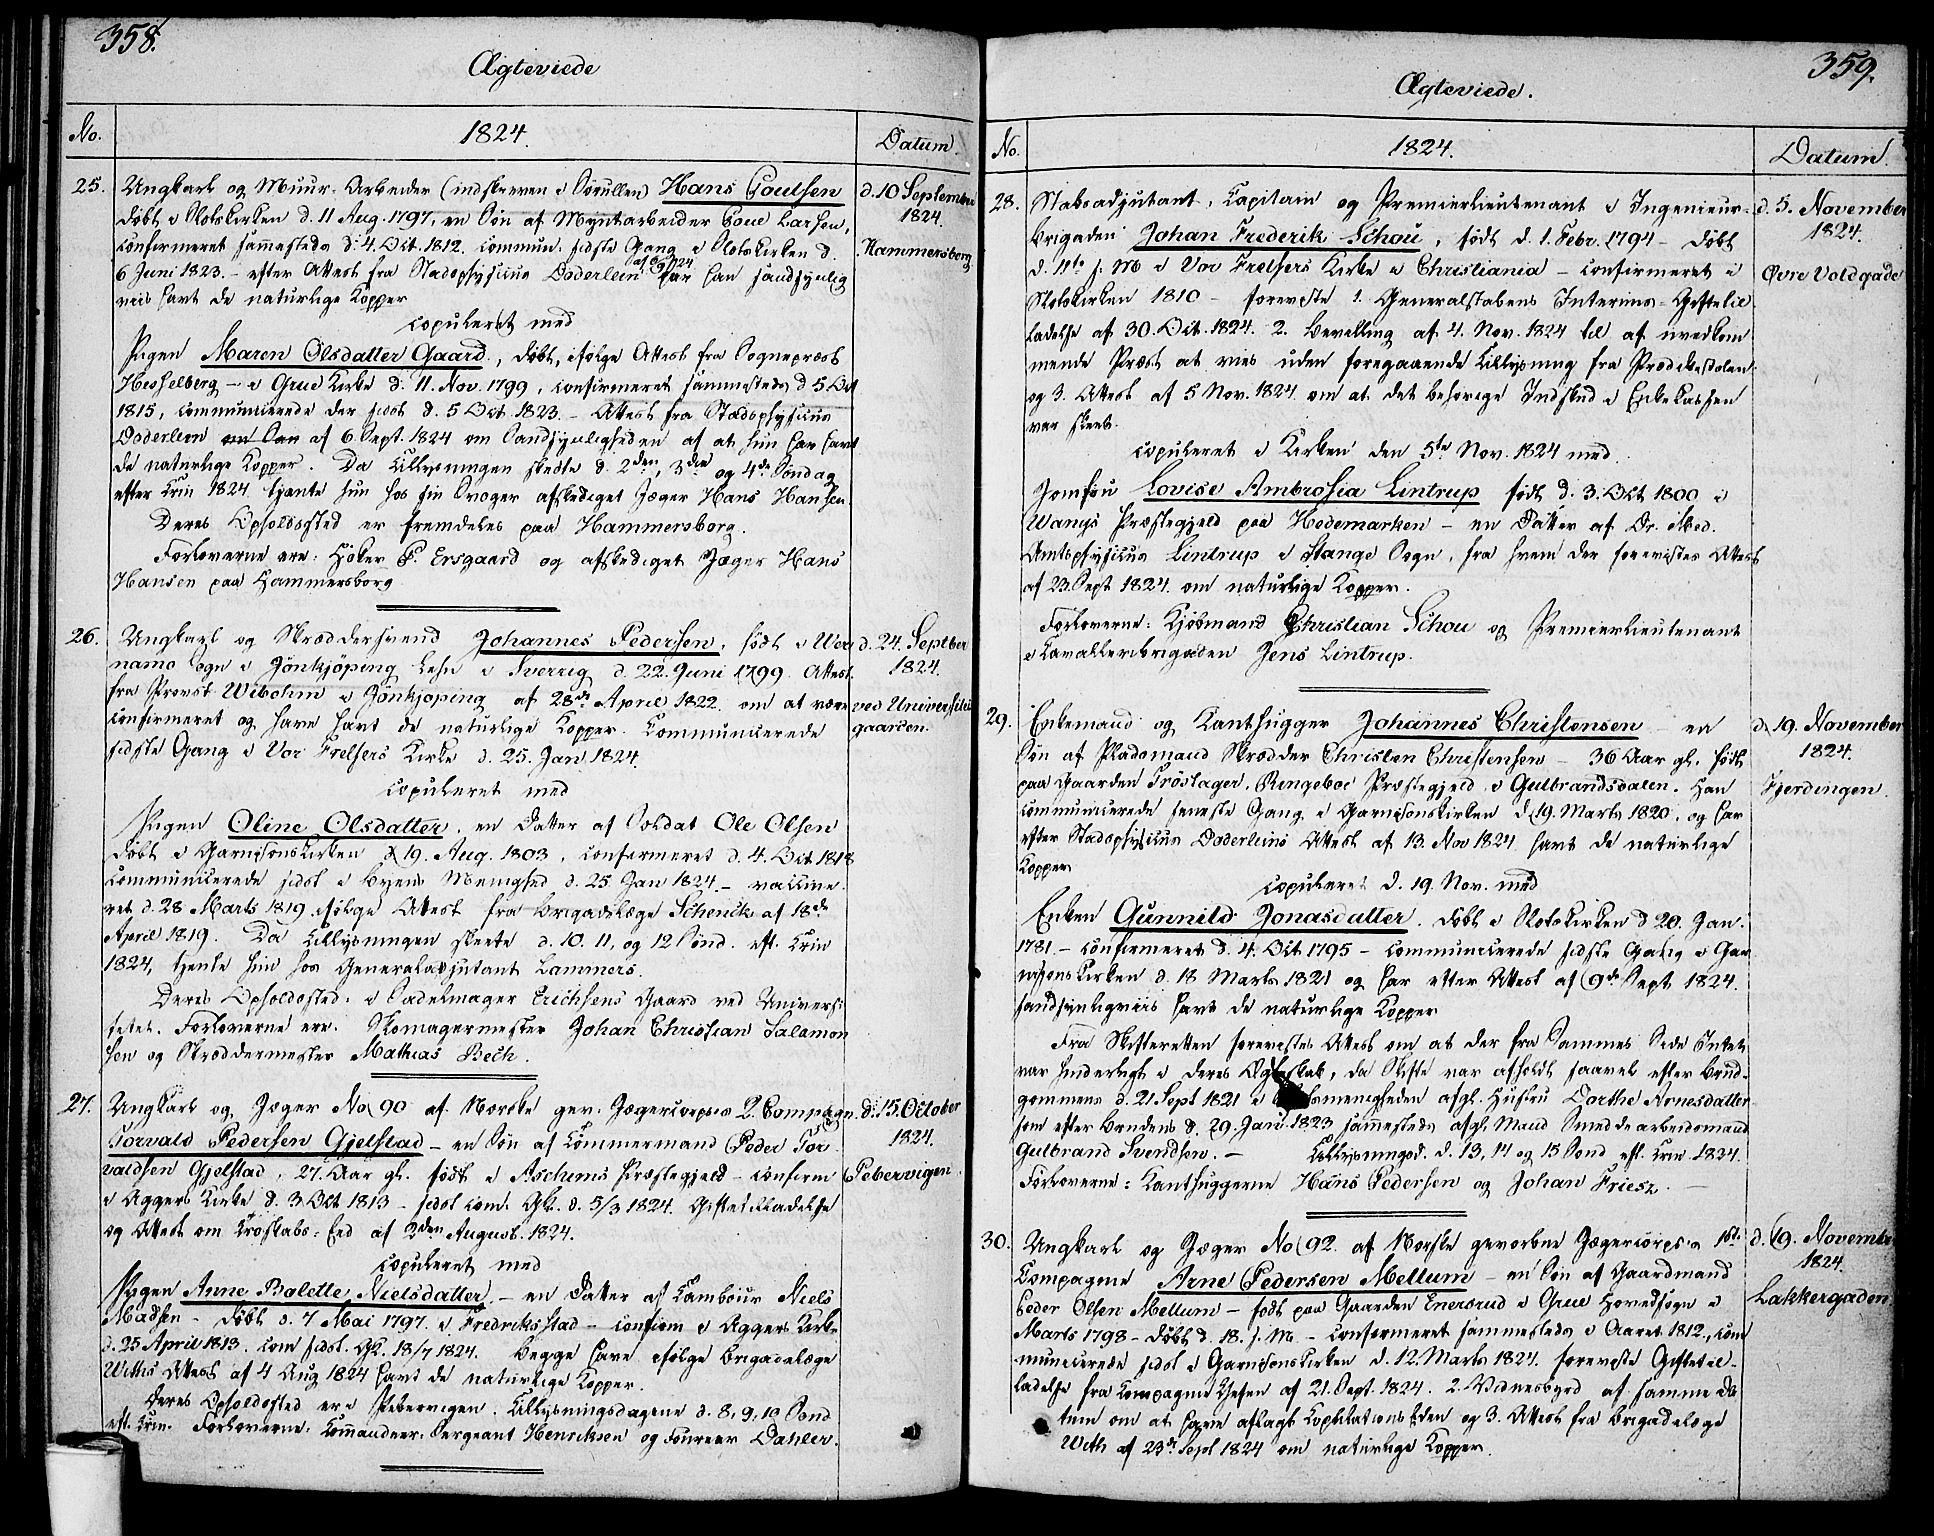 358.
Ægteviede
No.
1824.
Datum.
25. Ungkarl og Muur-Arbeider (indskreven i Rullen) Hans Poulsen
døbt i Slotskirken d. 11 Aug. 1797, en Søn af Myntarbeider Poul Larsen,
confirmeret sammesteds d. 4. Oct. 1812. commun. sidste Gang i Slotskirken d.
6 Juni 1823. – efter Attest fra Stadsphysicus Døderlein af 6/9 1824 har han sandsynlig
viis havt de naturlige Kopper
copuleret med
Pigen Maren Olsdatter Gaard, døbt, ifølge Attest fra Sognepræst
Hesselberg – i Grue Kirke d. 11. Nov. 1799, confirmeret sammesteds d 5 Oct
1815, communicerede der sidst d. 5 Oct. 1823. – Attest fra Stadsphysicus
Døderlein af 6 Sept. 1824 om Sandsynligheden af at hun har havt
de naturlige Kopper. Da Tillysningen skedte d. 2den, 3die og 4de Søndag
efter Trin 1824 tjente hun hos sin Svoger afskediget Jæger Hans Hansen.
Deres Opholdssted er fremdeles paa Hammersborg.
Forloverne ere: Høker P. Ersgaard og afskediget Jæger Hans
Hansen paa Hammersborg
d. 10 September
1824.
Hammersborg
26. Ungkarl og Skræddersvend Johannes Pedersen, født i Wer
namo Sogn i Jönkjöping Lehn i Sverrig d. 22. Juni 1799. Attest
fra Provst Wibohm i Jönkjoping af 28de April 1822. om at være
confirmeret og have havt de naturlige Kopper. Communicerede
sidste Gang i Vor Frelsers Kirke d. 25. Jan 1824.
copuleret med
Pigen Oline Olsdatter, en Datter af Soldat Ole Olsen
døbt i Garnisonskirken d 19. Aug. 1803, confirmeret d. 4. Oct 1818
communicerede sidst i Byens Menighed d. 25 Jan 1824. – vaccine-
ret d. 28 Marts 1819 ifølge Attest fra Brigadelæge Schenck af 18de
April 1819. Da Tillysningen skeete d. 10. 11, og 12 Sønd. eft. Trin
1824, tjente hun hos Generaladjutant Lammers.
Deres Opholdssted: i Sadelmager Erichsens Gaard ved Universi-
tetet. Forloverne ere. Skomagermester Johan Christian Salamon
sen og Skræddermester Mathias Bech.
d. 24. Septber
1824.
ved Universitets
gaarden.
27. Ungkarl og Jæger No 90 af Norske gev. Jægercorpses 2. Compagn.
Torvald Pedersen Gjelstad – en Søn af Tømmermand Peder Tor-
valdsen Gjelstad, 27. Aar gl. født i Aschims Præstegjeld – confirm
i Aggers Kirke d. 3 Oct 1813 – sidst com. Gk. d. 5/3 1824. Giftetilladelse
og Attest om Troskabs-Eed af 2den August. 1824.
copuleret med
Pigen Anne Bolette Nielsdatter. – en Datter af Tambour Niels
Madsen – døbt d. 7 Mai 1797. i Fredriksstad – confirm i Aggers Kirke
d. 25 April 1813. com sidst. Gk. 18/7 1824. Begge have ifølge Brigadelæge
Withs Attest af 4 Aug 1824 havt de naturlige Kopper.
Deres Opholdssted er i Pebervigen. Tillysningsdagene d. 8, 9, 10 Sønd
eft. Trin. Forloverne: Commandeer-Sergeant Henriksen og Foureer Dahler.
d. 15. October
1824.
Pebervigen.
359.
Ægteviede.
No.
1824.
Datum
28. Stabsadjutant, Capitain og Premierlieutenant i Ingenieur-
Brigaden Johan Frederik Schou, født d. 1. Febr. 1794 – døbt
d. 11te s. M i Vor Frelsers Kirke i Christiania – confirmeret i
Slotskirken 1810 – foreviste 1. Generalstabens Interims-Giftetil
ladelse af 30. Oct. 1824. 2. Bevilling af 4. Nov. 1824 til af uvedkom
mende Præst at vies uden foregaaende Tillysning fra Prædikestolen
og 3. Attest af 5 Nov. 1824 om at det behørige Indskud i Enkekassen
var skeet.
copuleret i Kirken den 5te Nov. 1824 med.
Jomfru Lovise Ambrosia Lintrup født d. 3. Oct 1800 i
Wangs Præstegjeld paa Hedemarken – en Datter af Dr. Med.
Amtsphysicus Lintrup i Stange Sogn, fra hvem der forevistes Attest
af 23. Sept 1824. om naturlige Kopper.
Forloverne: Kjøbmand Christian Schou og Premierlieutenant
i Cavalleribrigaden Jens Lintrup.
d. 5. November
1824.
Øvre Voldgade
29. Enkemand og Kanthugger Johannes Christensen – en
Søn af Pladsmand Skrædder Christen Christensen – 36 Aar gl. født
paa Gaarden Frøslager, Ringeboe Præstegjeld i Gulbrandsdalen. Han
communicerede seneste Gang i Garnisonskirken d. 19. Marts 1820, og har
efter Stadsphysicus Døderleins Attest af 13. Nov 1824 havt de naturlige
Kopper
copuleret d. 19. Nov. med
Enken Gunnild Jonasdatter. døbt i Slotskirken d 20. Jan.
1781 – confirmeret d. 4. Oct 1795 – communicerede sidste Gang i Gar
nisonskirken d. 18 Marts 1821 og har efter Attest af 9de Sept 1824.
sandsynligviis havt de naturlige Kopper
Fra Skifteretten forevistes Attest om at der fra Sammes Side Intet
var hinderligt i deres Ægteskab, da Skifte var afholdt saavel efter Brud-
gommens d. 21 Sept 1821 i menigheden afgl. Hustru Dorthe Arnesdatter
som efter Brudens d. 29. Jan 1823 sammesteds afgl. Mand Smeddearbeidsmand
Gulbrand Svendsen. – Tillysningsd. d. 13, 14 og 15 Sønd eft. Trin 1824.
Forloverne: Kanthuggerne Hans Pedersen og Johan Friesz. –
d. 19. November
1824.
Fjerdingen.
30. Ungkarl og Jæger No 92. af Norske gevorbne Jægercorps's 1ste
Compagnie Arne Pedersen Mellum – en Søn af Gaardmand
Peder Olsen Mellum – født paa Gaarden Enersrud i Grue Hovedsogn i
Marts 1798 – døbt d. 18. s. M. – confirmeret sammesteds i Aaret 1812, com
municerede sidst i Garnisonskirken d. 12. Marts 1824. foreviste Giftetil-
ladelse fra Compagnie Chefen af 21. Sept. 1824. 2. Vidnesbyrd af samme Da
tum om at have aflagt Eden og 3. Attest fra Brigadelæge
With af 23de Sept 1824 om naturlige Kopper.
d. 19. November
1824.
Lakkergaden